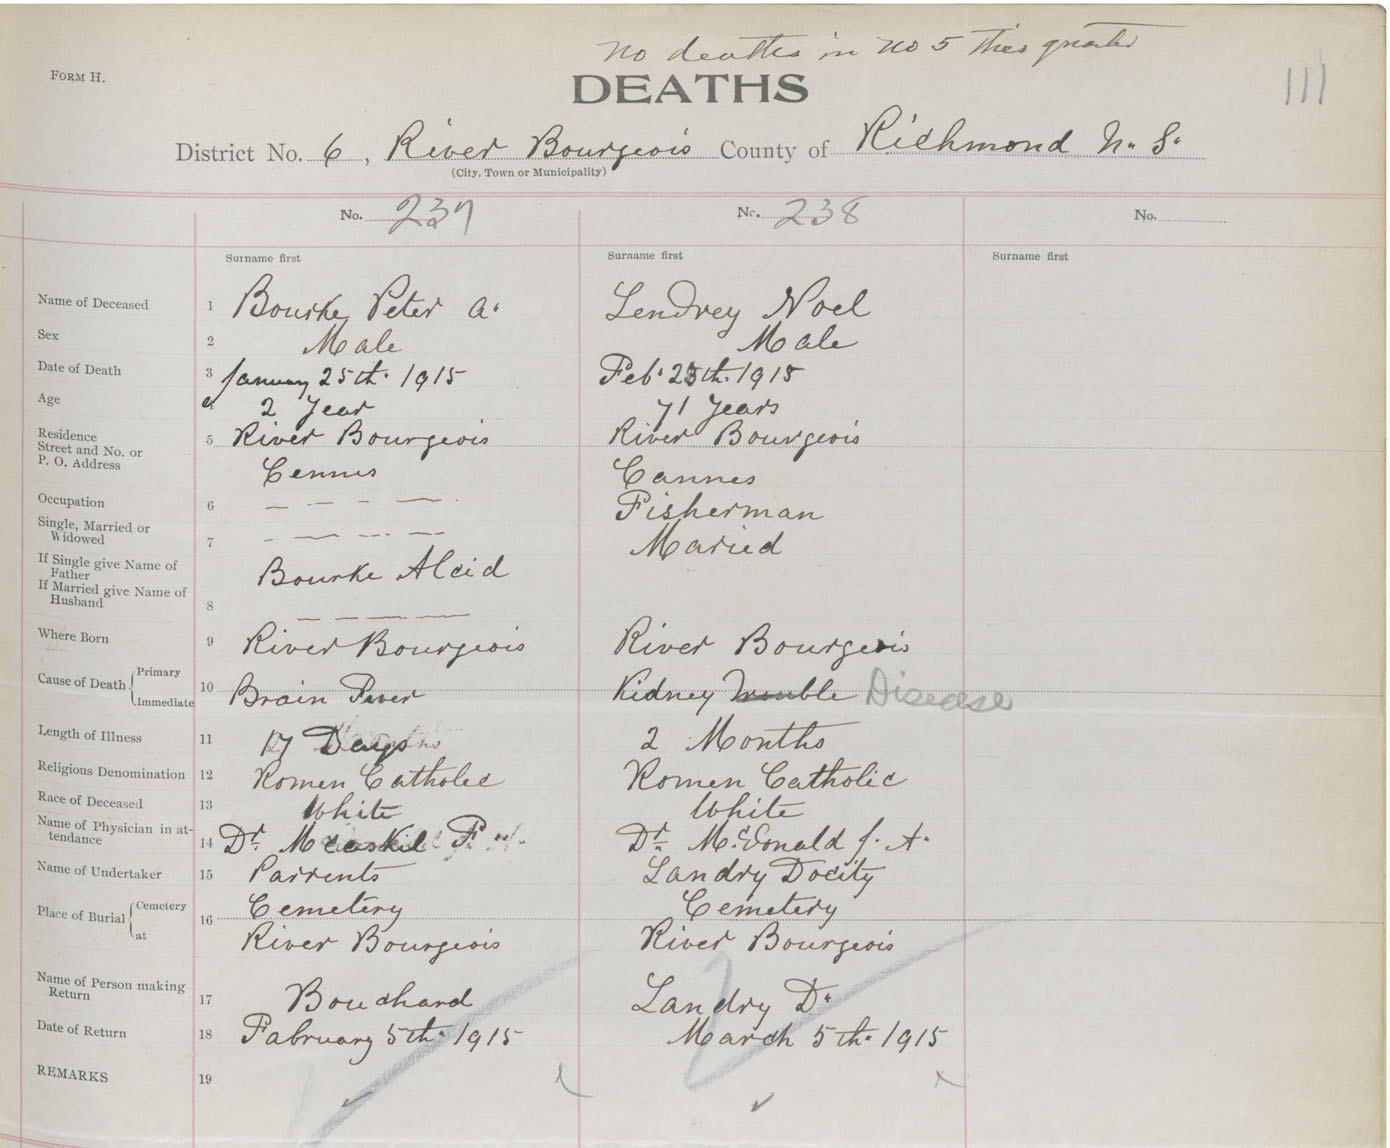 no deaths in no 5 this quarter
FORM H.
DEATHS
111
District No. 6, River Bourgeois County of Richmond N. S.
(City, Town or Municipality)
No. 237 No. 238 No.
Surname first Surname first Surname first
Name of Deceased 1 Bourke Peter A. Lendrey Noel
Sex 2 Male Male
Date of Death 3 January 25th. 1915 Feb. 25th. 1915
Age 4 2 Year 71 Years
Residence
Street and No. or 5 River Bourgeois River Bourgeois
P. O. Address Cennes Cannes
Occupation 6 — — — — Fisherman
Single, Married or
Widowed 7 - — --- — Maried
If Single give Name of
Father Bourke Alcid
If Married give Name of
Husband 8 — — — — —
Where Born 9 River Bourgeois River Bourgeois
Cause of Death { Primary
Immediate 10 Brain Fever Kidney Trouble Disease
Length of Illness 11 17 Days 2 Months
Religious Denomination 12 Romen Catholec Romen Catholic
Race of Deceased 13 White White
Name of Physician in at-
tendance 14 Dr. Mccaskil F. Dr. McDonald J. A.
Name of Undertaker 15 Parrents Landry Docity
Place of Burial { Cemetery 16 Cemetery Cemetery
at River Bourgeois River Bourgeois
Name of Person making
Return 17 Bouchard Landry D.
Date of Return 18 Fabruary 5th. 1915 March 5th. 1915
REMARKS 19